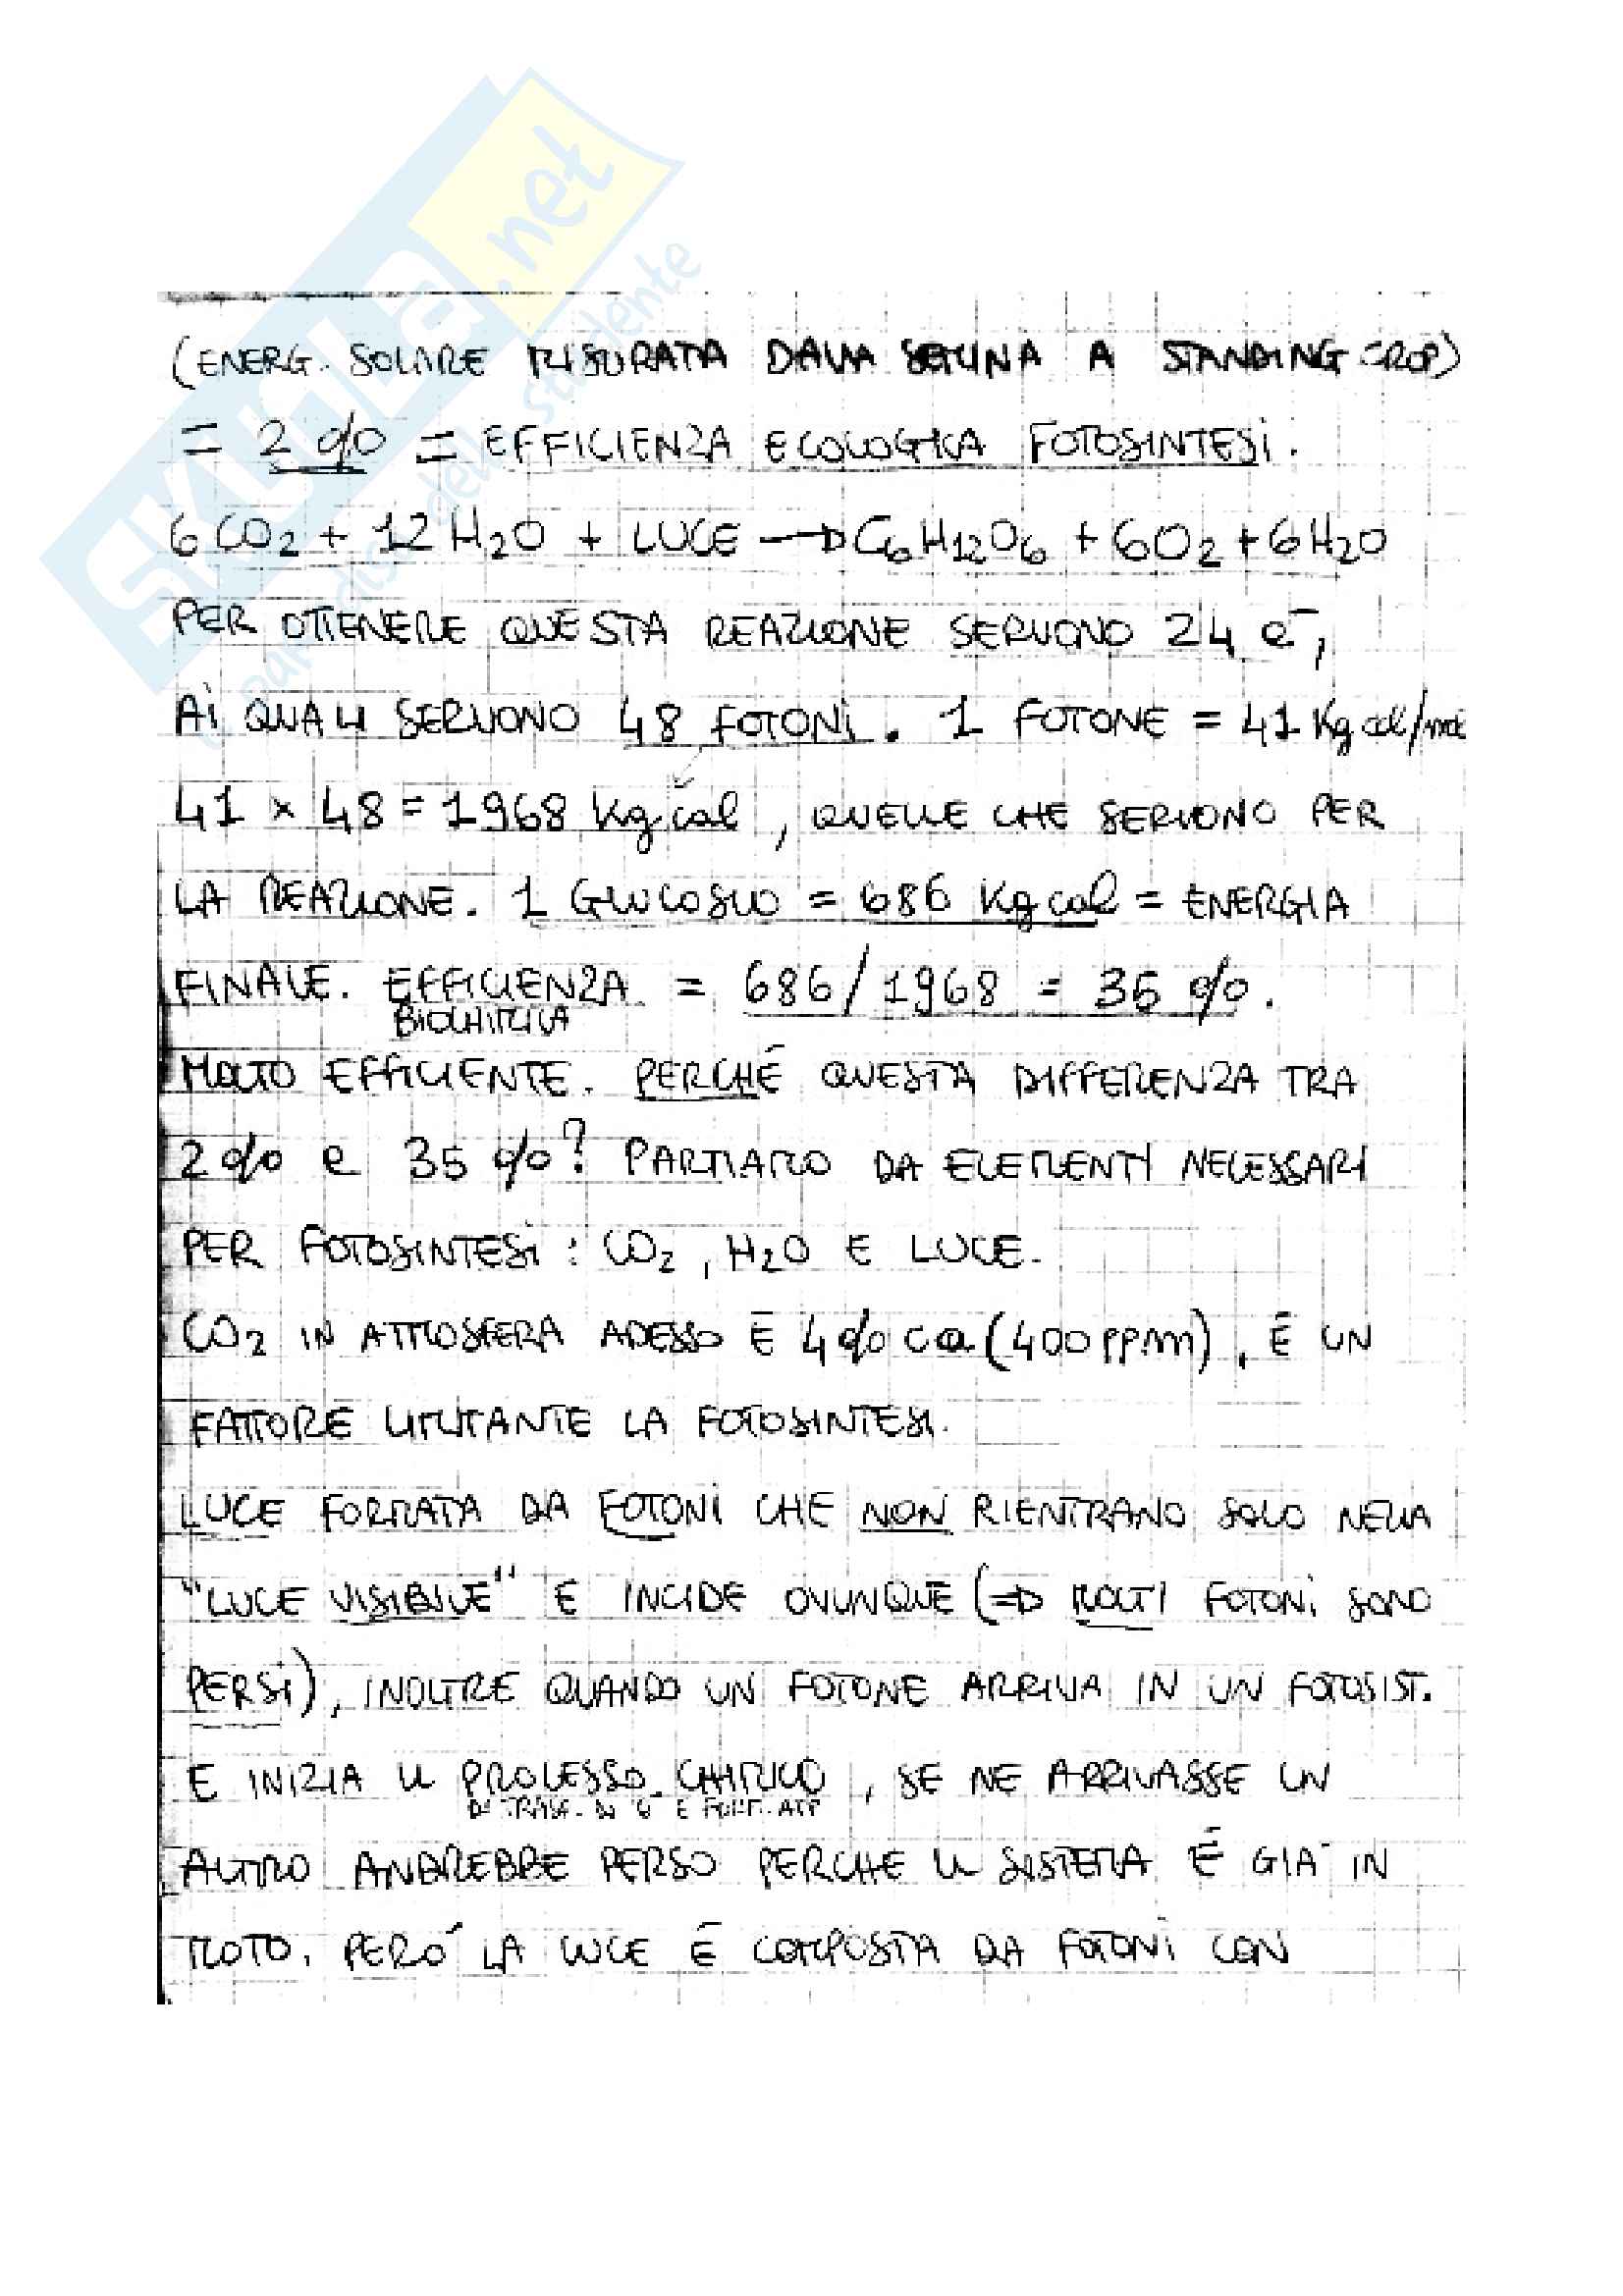 SKUOLa.net
paradiso dello studente
(ENERG. SOLARE MISURATA DALLA SEMINA A STANDING CROP)
= 2 % = EFFICIENZA ECOLOGICA FOTOSINTESI.
6 CO2 + 12 H2O + LUCE → C6H12O6 + 6O2 + 6H2O
PER OTTENERE QUESTA REAZIONE SERVONO 24 e⁻,
AI QUALI SERVONO 48 FOTONI. 1 FOTONE = 41 Kg cal/mol
41 x 48 = 1968 Kg cal, QUELLE CHE SERVONO PER
LA REAZIONE. 1 GLUCOSIO = 686 Kg cal = ENERGIA
FINALE. EFFICIENZA = 686/1968 = 35 %.
BIOCHIMICA
MOLTO EFFICIENTE. PERCHÉ QUESTA DIFFERENZA TRA
2 % e 35 %? PARTIAMO DA ELEMENTI NECESSARI
PER FOTOSINTESI: CO2, H2O E LUCE.
CO2 IN ATMOSFERA ADESSO È 4 % ca (400 ppm), È UN
FATTORE LIMITANTE LA FOTOSINTESI.
LUCE FORMATA DA FOTONI CHE NON RIENTRANO SOLO NELLA
"LUCE VISIBILE" E INCIDE OVUNQUE (⇒ MOLTI FOTONI SONO
PERSI), INOLTRE QUANDO UN FOTONE ARRIVA IN UN FOTOSIST.
E INIZIA IL PROCESSO CHIMICO, SE NE ARRIVASSE UN
DI TRASF. DI e⁻ E FORM. ATP
ALTRO ANDREBBE PERSO PERCHE IL SISTEMA È GIA IN
MOTO. PERÒ LA LUCE È COMPOSTA DA FOTONI CON